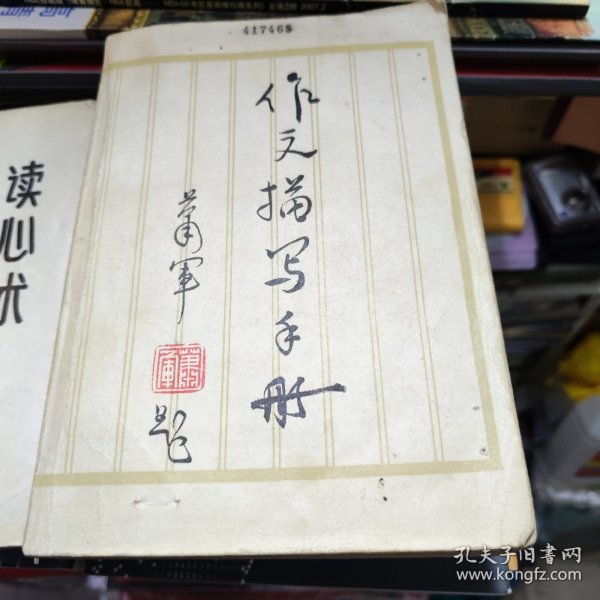 417465
作文描写手册
萧军
萧军
题
读心术
孔夫子旧书网
www.kongfz.com